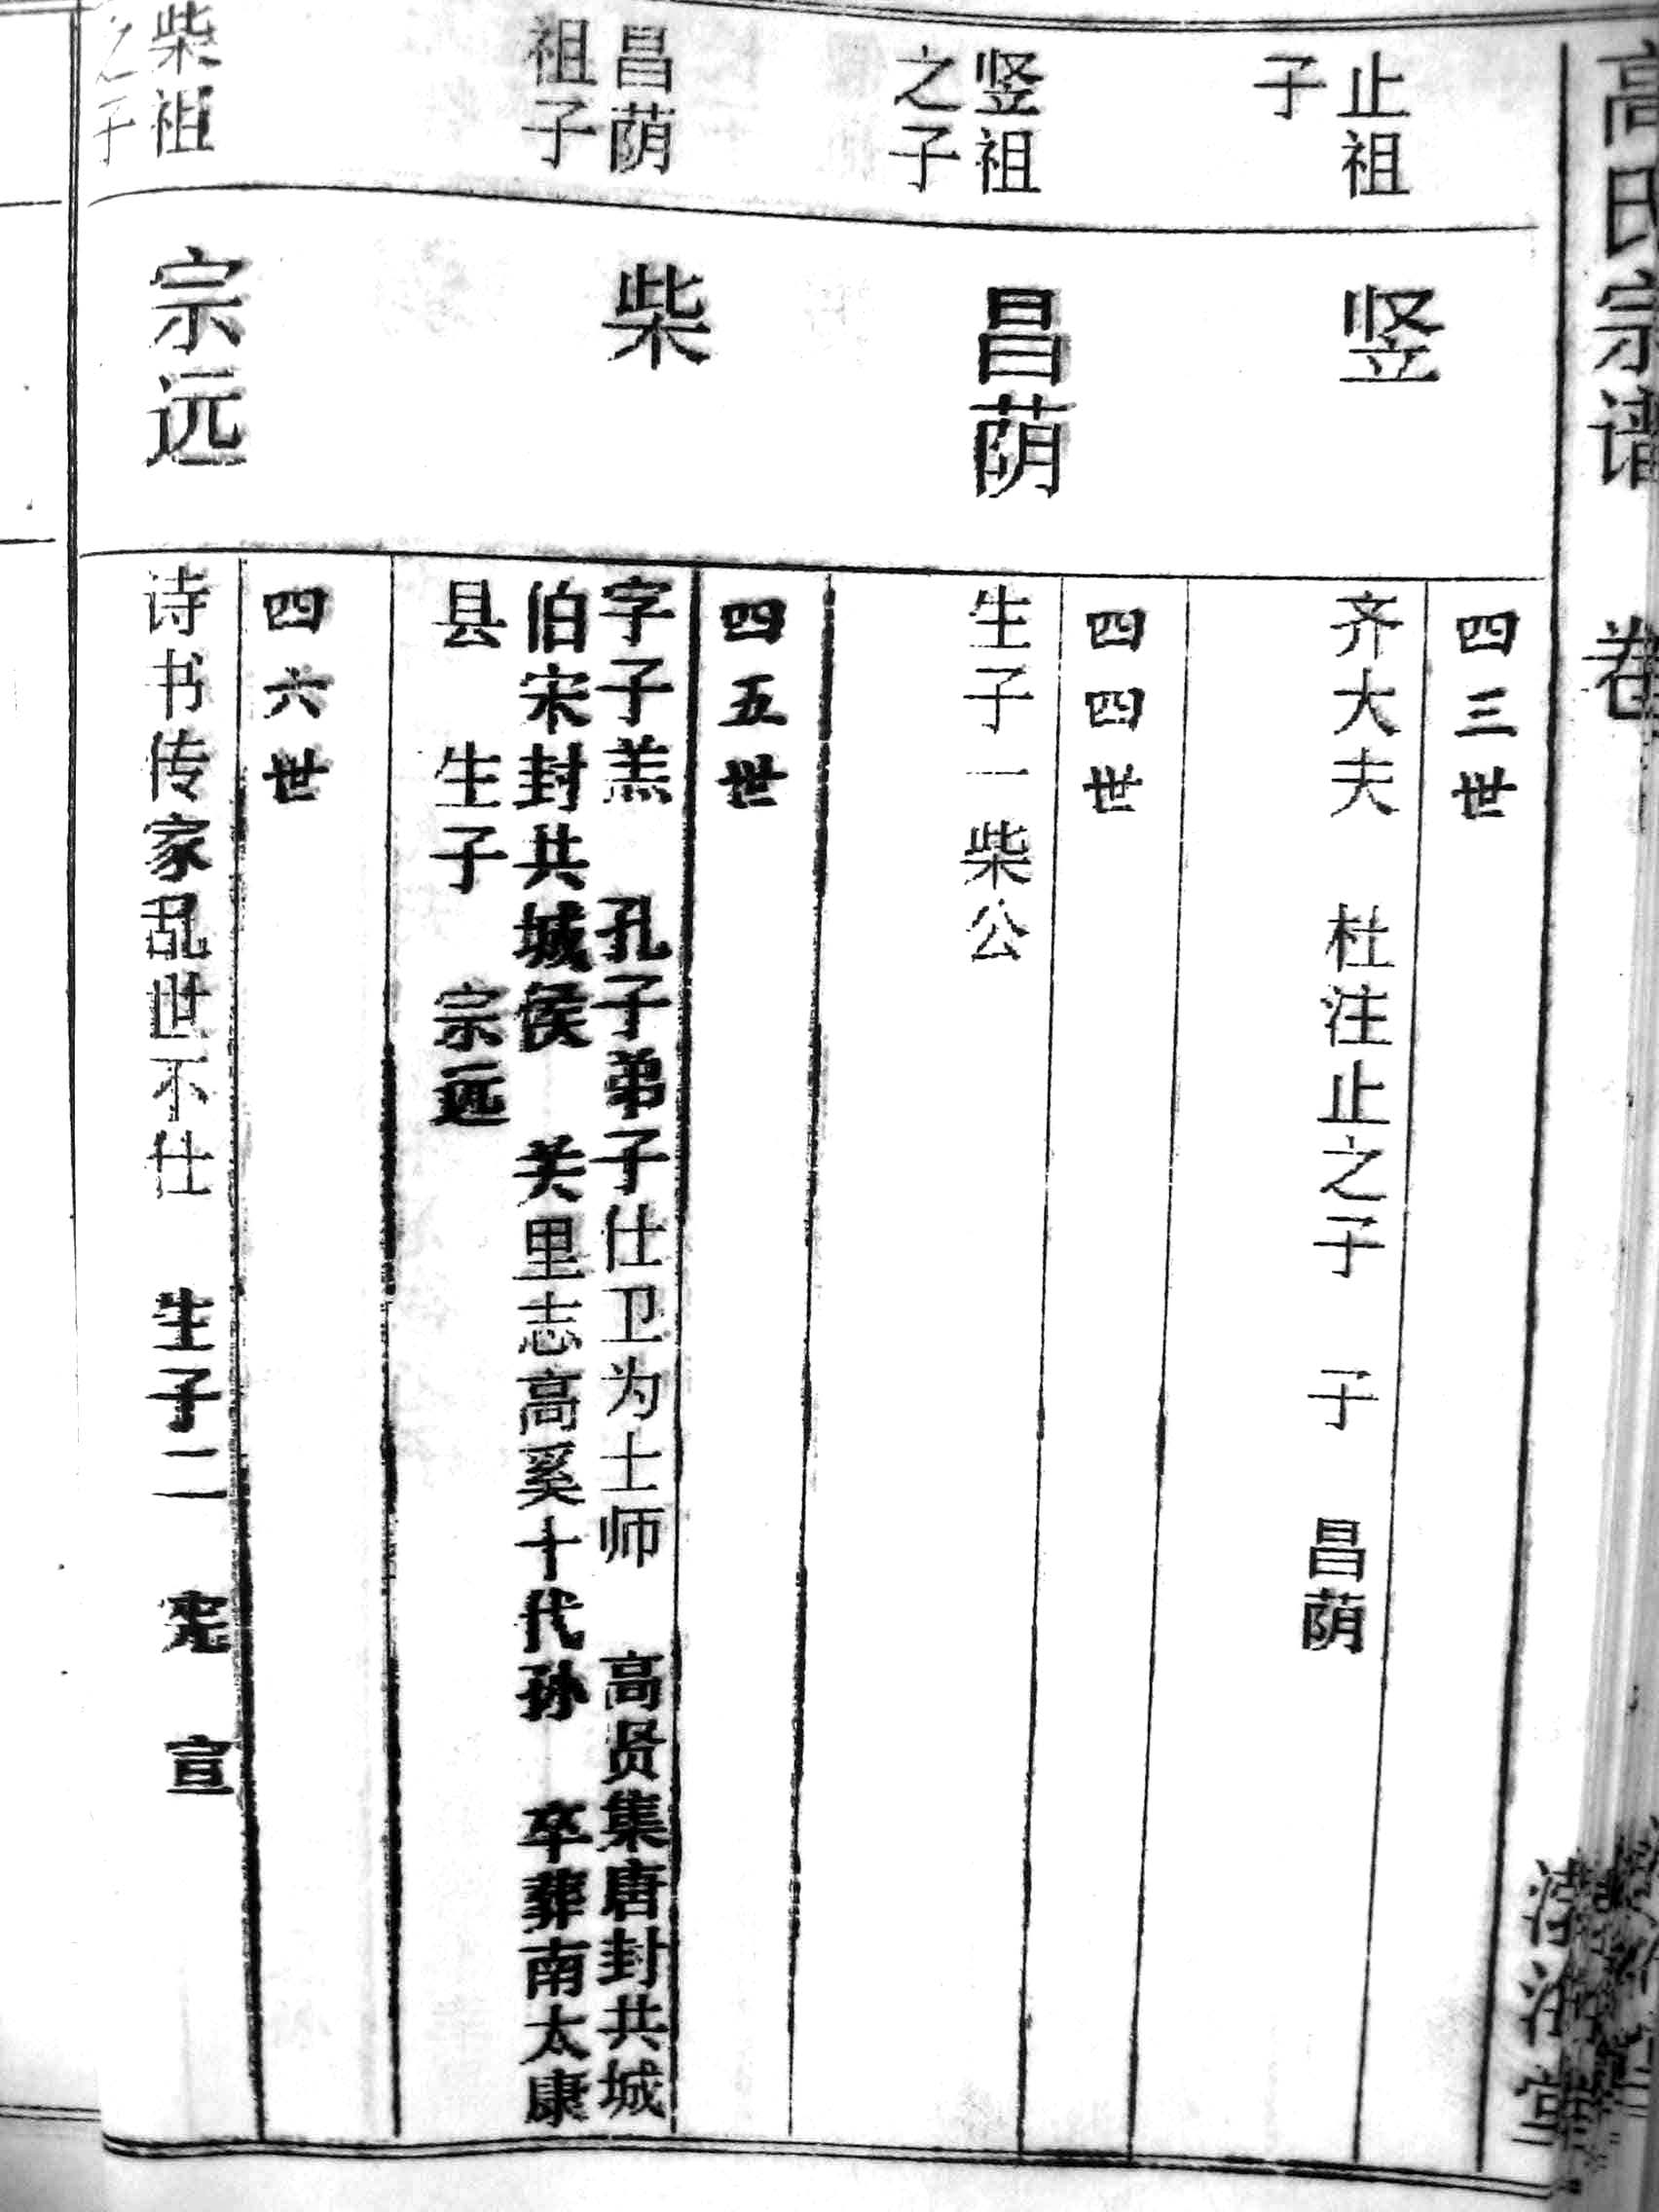 高氏宗谱 卷
止祖
子
竖
四三世
齐大夫 杜注止之子 子 昌荫
竖祖
之子
昌荫
四四世
生子一柴公
昌荫
祖子
柴
四五世
字子羔 孔子弟子仕卫为士师 高贤集唐封共城
伯宋封共城侯 关里志高奚十代孙 卒葬南太康
县 生子 宗远
柴祖
之子
宗远
四六世
诗书传家乱世不仕 生子二 宪 宣